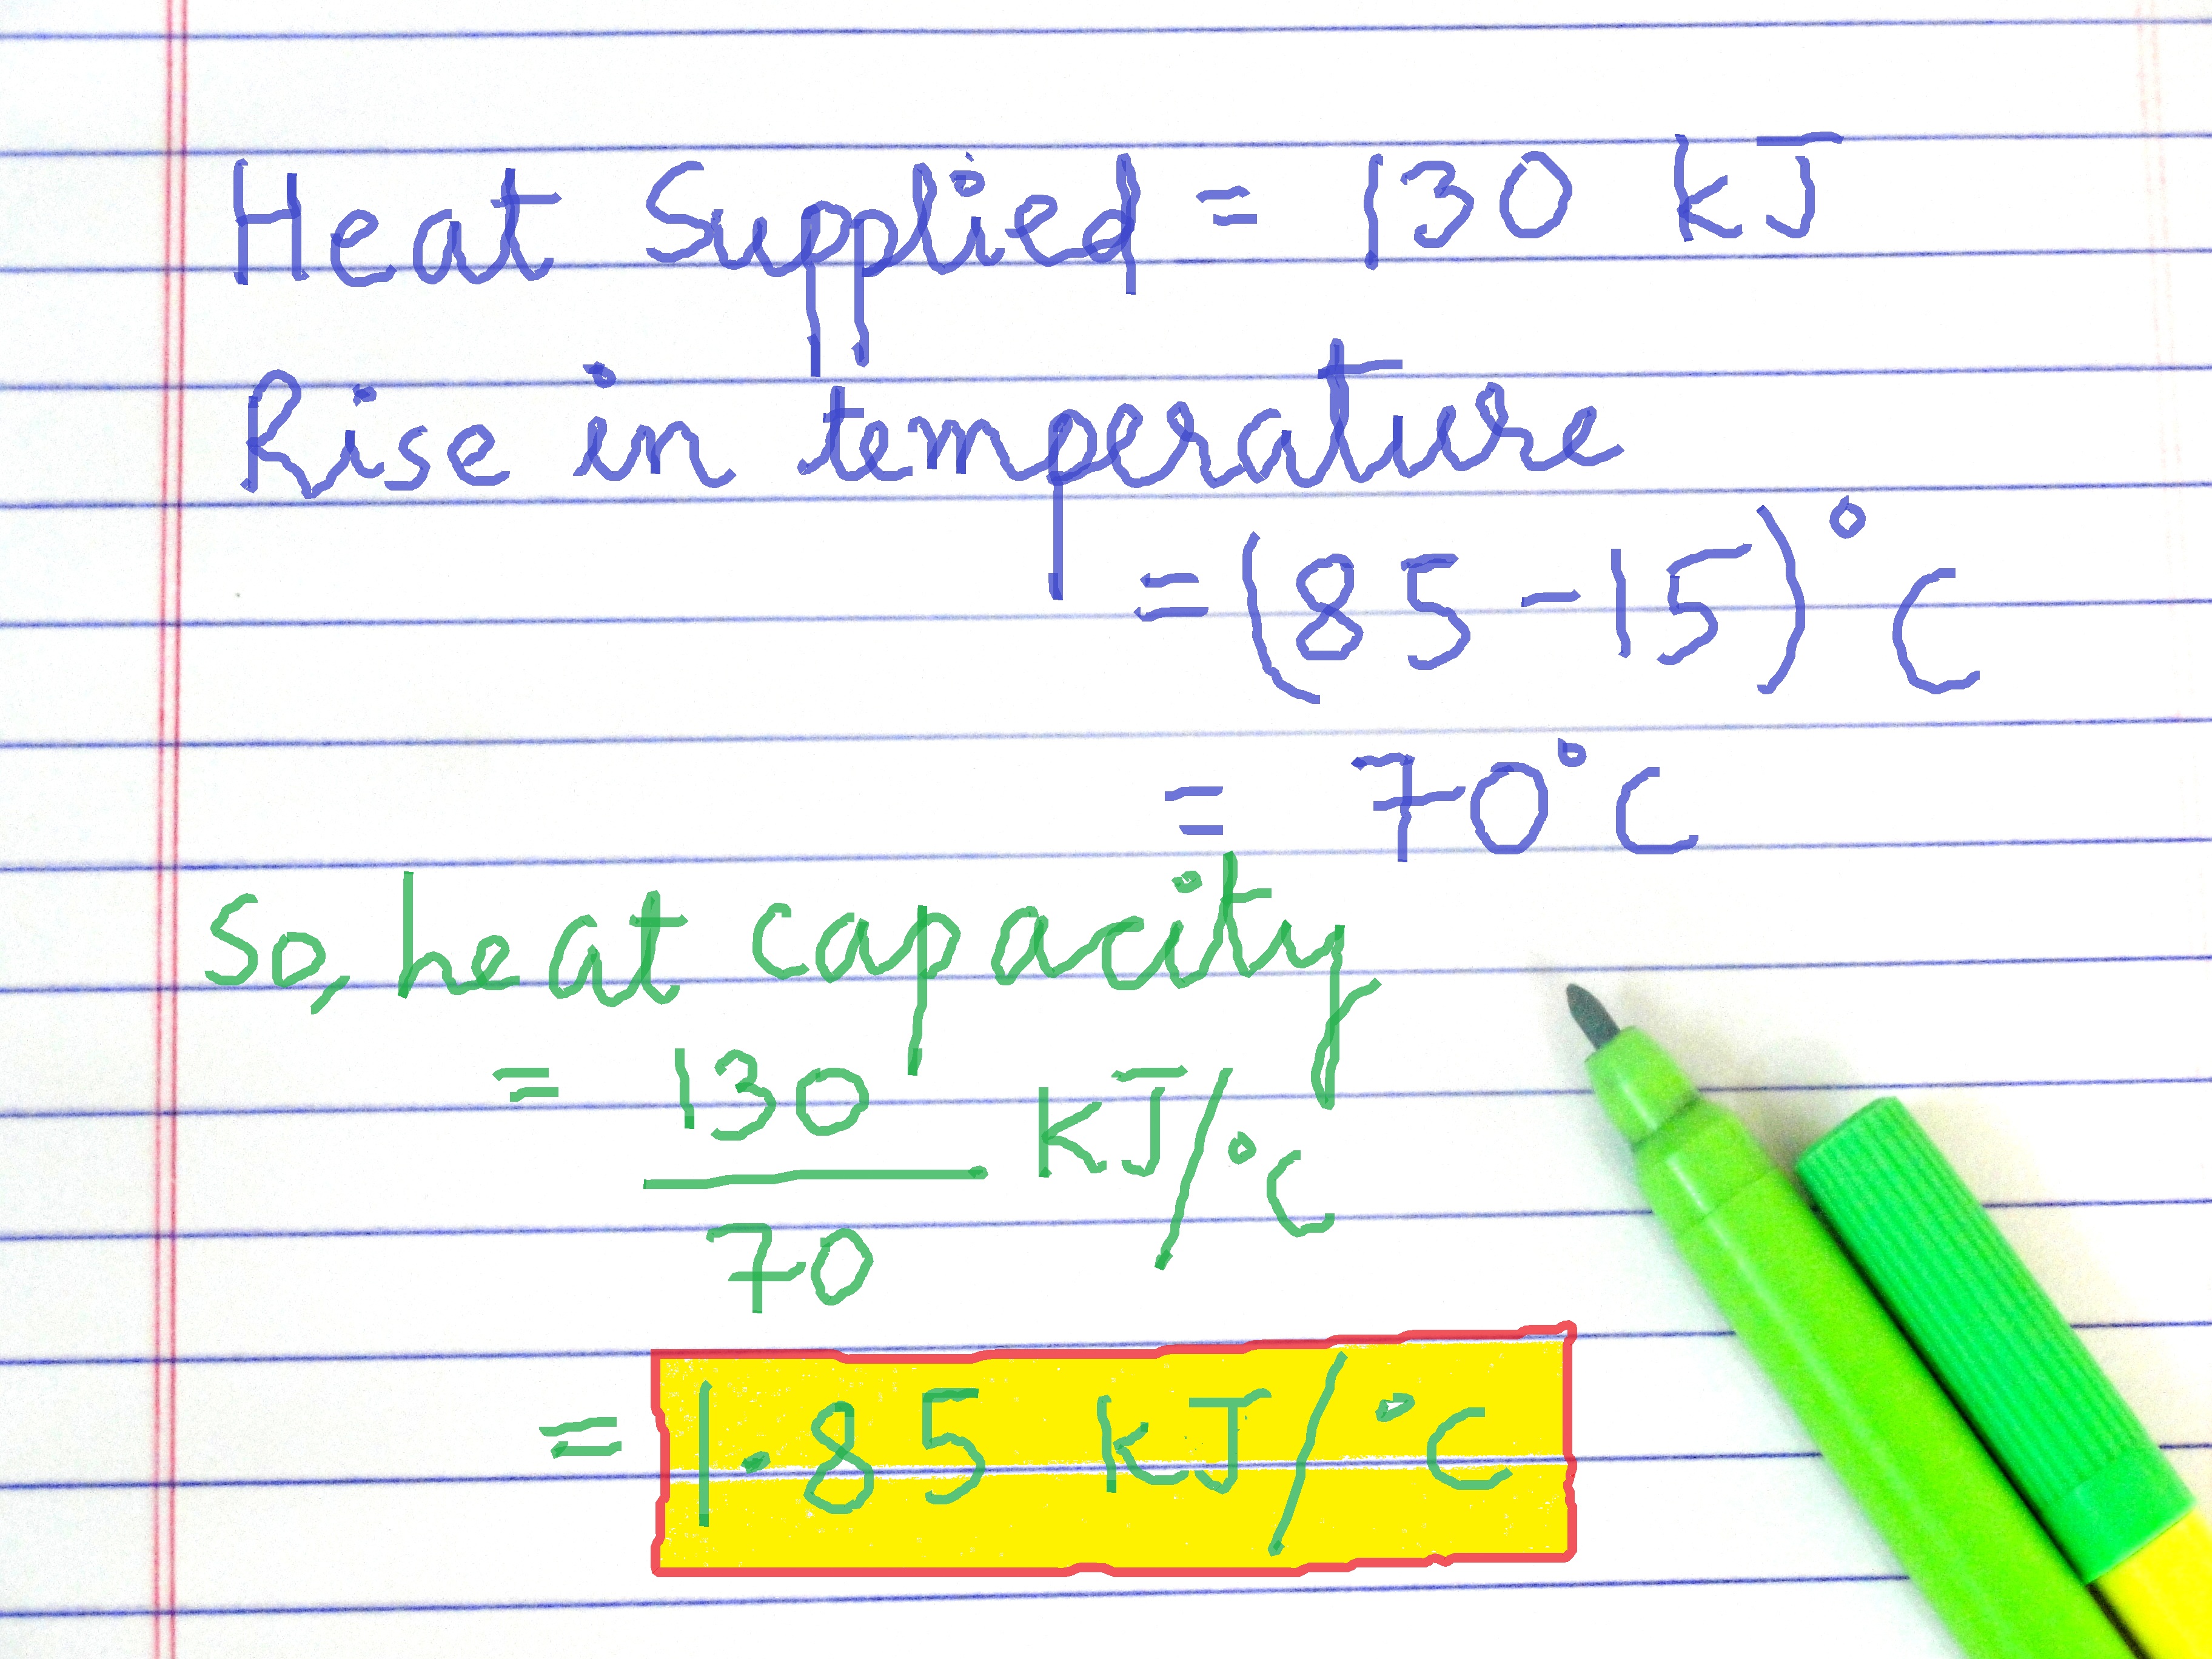 Heat Supplied = 130 kJ
Rise in temperature
= (85 - 15)°C
= 70°C
So, heat capacity
= 130/70 kJ/°C
= 1.85 kJ/°C